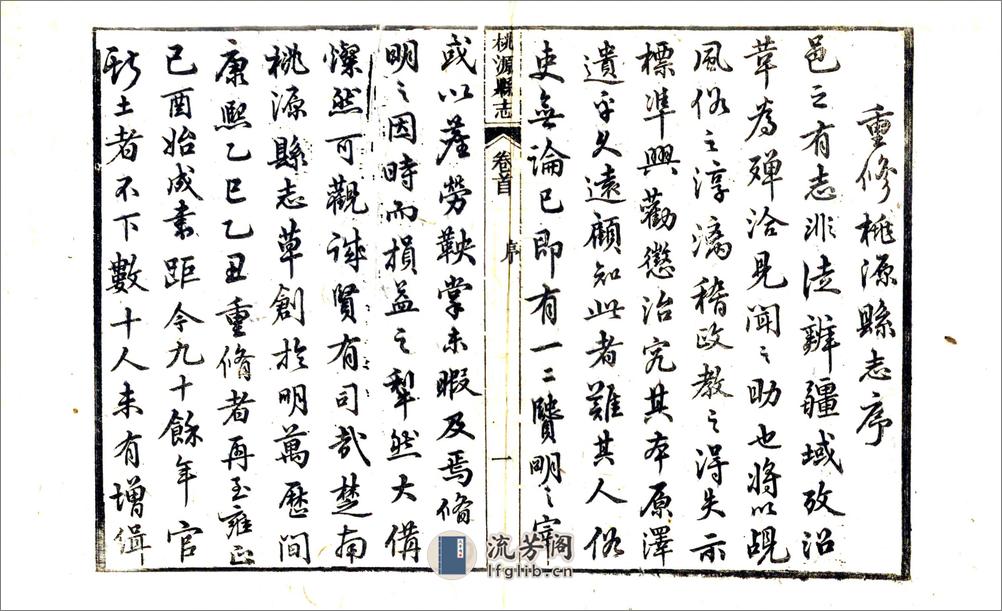 重修桃源縣志序
邑之有志非徒辨疆域攷沿
革為殫洽見聞之助也將以覘
風俗之淳漓稽政教之得失示
標準興勸懲治究其本原澤
遺乎久遠顧知此者難其人俗
吏無論已即有一二賢明之宰
桃源縣志 卷首 序 一
或以簿勞鞅掌未暇及焉脩
明之因時而損益之犁然大備
燦然可觀誠賢有司哉楚南
桃源縣志草創於明萬歷間
康熙乙巳乙丑重脩者再至雍正
己酉始成書距今九十餘年官
斯土者不下數十人未有增緝
流芳阁
lfglib.cn